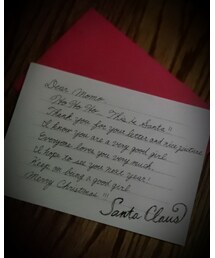 Dear Momo,
Ho Ho Ho... This is Santa!!
Thank you for your letter and nice pictures.
I know you are a very good girl.
Everyone loves you very much.
I hope to see you next year!
Keep on being a good girl.
Merry Christmas!!
Santa Claus